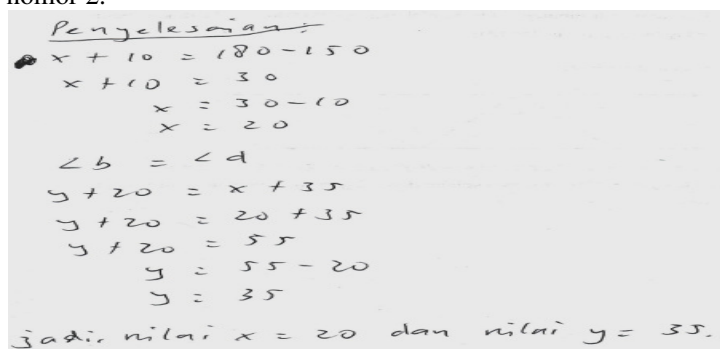 nomor 2.
Penyelesaian:
x + 10 = 180 - 150
x + 10 = 30
x = 30 - 10
x = 20
∠b = ∠d
y + 20 = x + 35
y + 20 = 20 + 35
y + 20 = 55
y = 55 - 20
y = 35
jadi, nilai x = 20 dan nilai y = 35.